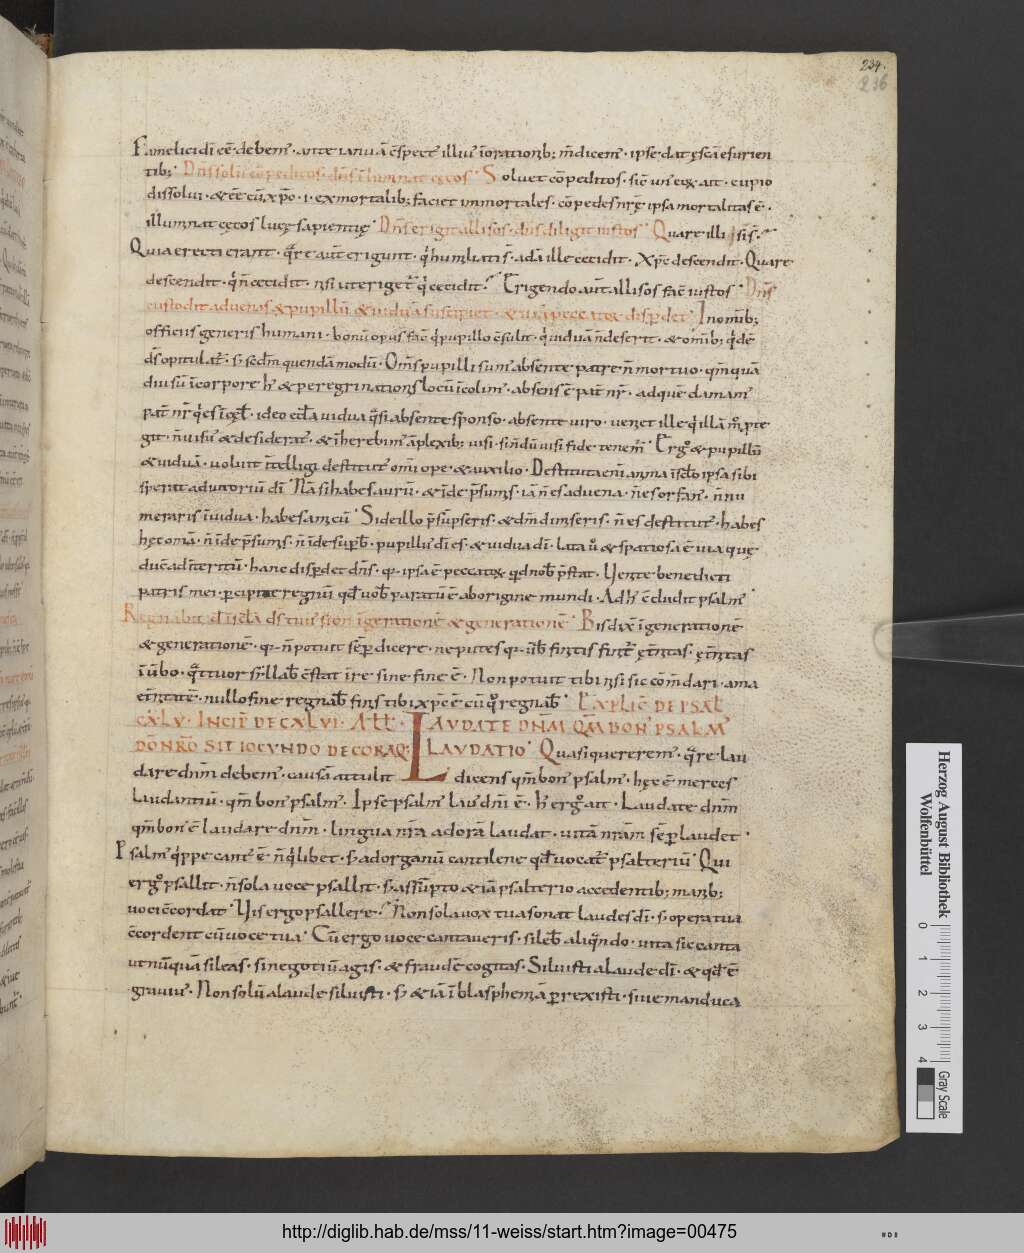 234.
236
Famelici dī eē debem̄. ante ianuā ēspect̄ illiū īorationb; m̄dicem̄. ipse dat escā esurien
tib; Dn̄s soluit cōpeditos. dn̄s īluminat cęcos Soluet cōpeditos. sic̄ un̄ eq; ait. cupio
dissolui. & eē cū xp̄o. i. ex mortalib; faciet inmortales. cōpedes nr̄ę ipsa mortalitas ē.
illuminat cęcos lucę sapientię Dn̄s erigit allisos. dn̄s diligit iustos Quare illi
Quia erecti erant. q̄re aut̄ erigunt̄. q̄ humiliati s̄. adā ille cecidit. xp̄c descendit. Quare
descendit. q̄ n̄ cecidit. nisi ut eriget̄ q̄ cecidit. Erigendo aut̄ allisos fac̄ iustos. Dn̄s
custodit aduenas & pupillū & uiduā suscipiet. & uiā peccatoꝝ disp̄det In omib;
officiis generis humani. bonū opus fac̄ q̄ pupillo c̄sulit. q̄ uiduā n̄ deserit. & omib; q̄dē
ds̄ opitulat̄. s; sc̄dm quendā modū. Om̄s pupilli sum̄ absente patre n̄ mortuo. qm̄quā
diuisū ī corpore h̄ & peregrinationis locū īcolim̄. absens ē pat̄ nr̄. ad quē clamam̄
pat̄ nr̄ q̄ es ī cęl̄. ideo eccl̄a uidua q̄si absente sponso. absente uiro. ueniet ille q̄ illā m̊ p̄te
git. n̄ uisū & desiderat̄. & īherebim̄ āplexib; uisi. sin̄ dū uisi fide tenem̄ Ergo & pupillū
& uiduā. uoluit ītelligi destitut̄ omī ope & auxilio. Destituta enī anima ī sc̄lo ipsa sibi
sperat adiutoriū dī Nā si habes aurū. & īde p̄sumis. iā n̄ es aduena. n̄ es orfan̄. n̄ nu
meraris ī uidua. habes amicū Si de illo p̄sūpseris. & dm̄ dimiseris. n̄ es destitut̄. habes
hęc omā. n̄ īde p̄sumis. n̄ īde supb̄. pupill̄ dī es. & uidua dī. lata ū & spatiosa ē uia quę
duc̄ ad īteritū. hanc disp̄det dn̄s. qꝛ ipsa ē peccatoꝝ qd nob̄ p̄stat. Uenite benedicti
patris mei. p̄cipite regnū qd uob̄ paratū ē ab origine mundi. Ad h̄ ē cludit psalm̄
Regnabit dn̄ ī sc̄la ds̄ tuus sion īgenerationē & generationē Bis dix̄ ī generationē
& generationē. qꝛ n̄ potuit sēp dicere. ne putes qꝛ ūb̄ finitis finit̄ ęt̄nitas. ęt̄nitas
ī ūbo. q̄ttuor syllab̄ c̄stat īre. sine fine ē. Non potuit tibi nisi sic cōm̄dari. ama
et̄nitatē. nullo fine regnab̄ finis tibi xp̄c ē cū q̊ regnab̄ EXPLIC̄ DE PSAL̄
CXLV. INCIP̄ DE CXLVI. ALL̄. LAVDATE DN̄M QM̄ BON̄ PSALM̄
DŌ NR̄O SIT IOCVNDO DECORAQ; LAVDATIO Quasi quererem̄. q̄re lau
dare dn̄m debem̄. causā attulit dicens qm̄ bon̄ psalm̄. hęc ē merces
laudantiū. qm̄ bon̄ psalm̄. Ipse psalm̄ laus dn̄i ē. H̄ ergo ait. Laudate dn̄m
qm̄ bon̄ ē laudare dn̄m. lingua nr̄a ad orā laudat. uitā nr̄am sēp laudet
Psalm̄ q̄ppe cant̄ ē. n̄ q̄libet. s; ad organū cantilene qd uocat̄ psalteriū Qui
ergo psallit. n̄ sola uoce psallit. s; assūpto & iā psalterio accedentib; manib;
uoci c̄cordat Uis ergo psallere. Non sola uox tua sonat laudes dī. s; opera tua
c̄cordent cū uoce tua Cū ergo uoce cantaueris. sileb̄ aliq̄ndo. uita sic canta
ut nūquā sileas. si negotiū agis. & fraudē cogitas. Siluisti a laude dī. & qd ē
grauiū. Non solū a laude siluisti. s; & iā ī blasphemiā p̄rexisti. siue manduca
http://diglib.hab.de/mss/11-weiss/start.htm?image=00475
Herzog August Bibliothek
Wolfenbüttel
0 1 2 3 4
Gray Scale